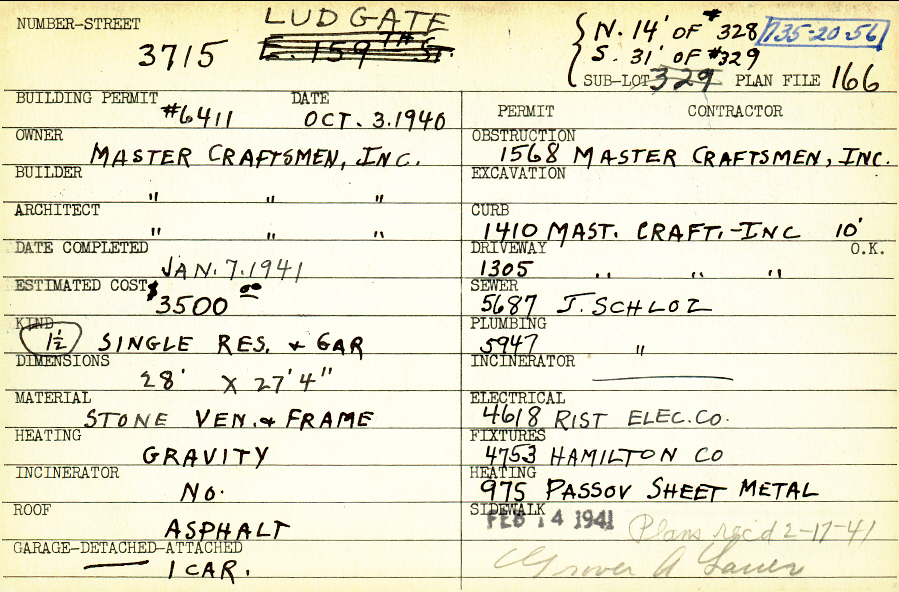 NUMBER-STREET LUDGATE
3715 E. 159TH St.
N. 14' OF #328 735-20-56
S. 31' OF #329
SUB-LOT 329 PLAN FILE 166
BUILDING PERMIT DATE
#6411 OCT. 3.1940
OWNER
MASTER CRAFTSMEN, INC.
BUILDER
" " "
ARCHITECT
" " "
DATE COMPLETED
JAN. 7.1941
ESTIMATED COST
$3500 00
KIND
1½ SINGLE RES. & GAR
DIMENSIONS
28' X 27'4"
MATERIAL
STONE VEN. & FRAME
HEATING
GRAVITY
INCINERATOR
NO.
ROOF
ASPHALT
GARAGE-DETACHED-ATTACHED
1 CAR.
PERMIT CONTRACTOR
OBSTRUCTION
1568 MASTER CRAFTSMEN, INC.
EXCAVATION
CURB
1410 MAST. CRAFT.-INC 10'
DRIVEWAY O.K.
1305 " " "
SEWER
5687 J. SCHLOZ
PLUMBING
5947 "
INCINERATOR
ELECTRICAL
4618 RIST ELEC. CO.
FIXTURES
4753 HAMILTON CO
HEATING
975 PASSOV SHEET METAL
SIDEWALK
FEB 14 1941 Plans rec'd 2-17-41
Grover A